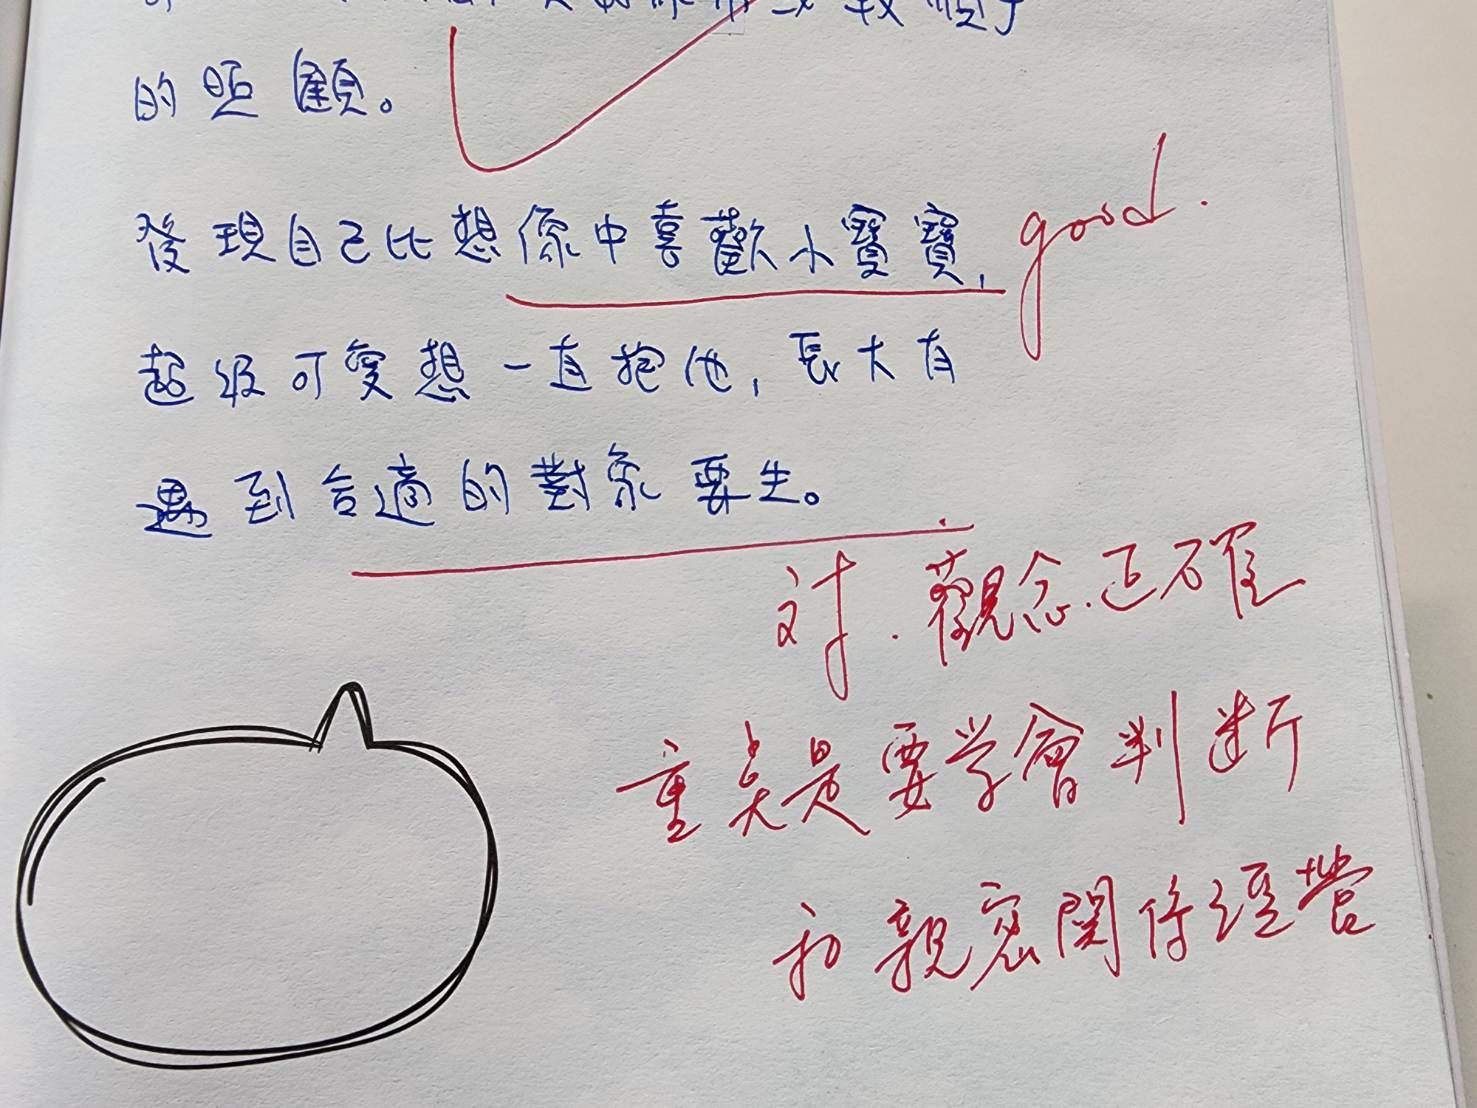 的照顧。
發現自己比想像中喜歡小寶寶,
good.
超級可愛想一直抱他,長大有
遇到合適的對象要生。
对.觀念正確
重点是要学會判断
和親密関係經營